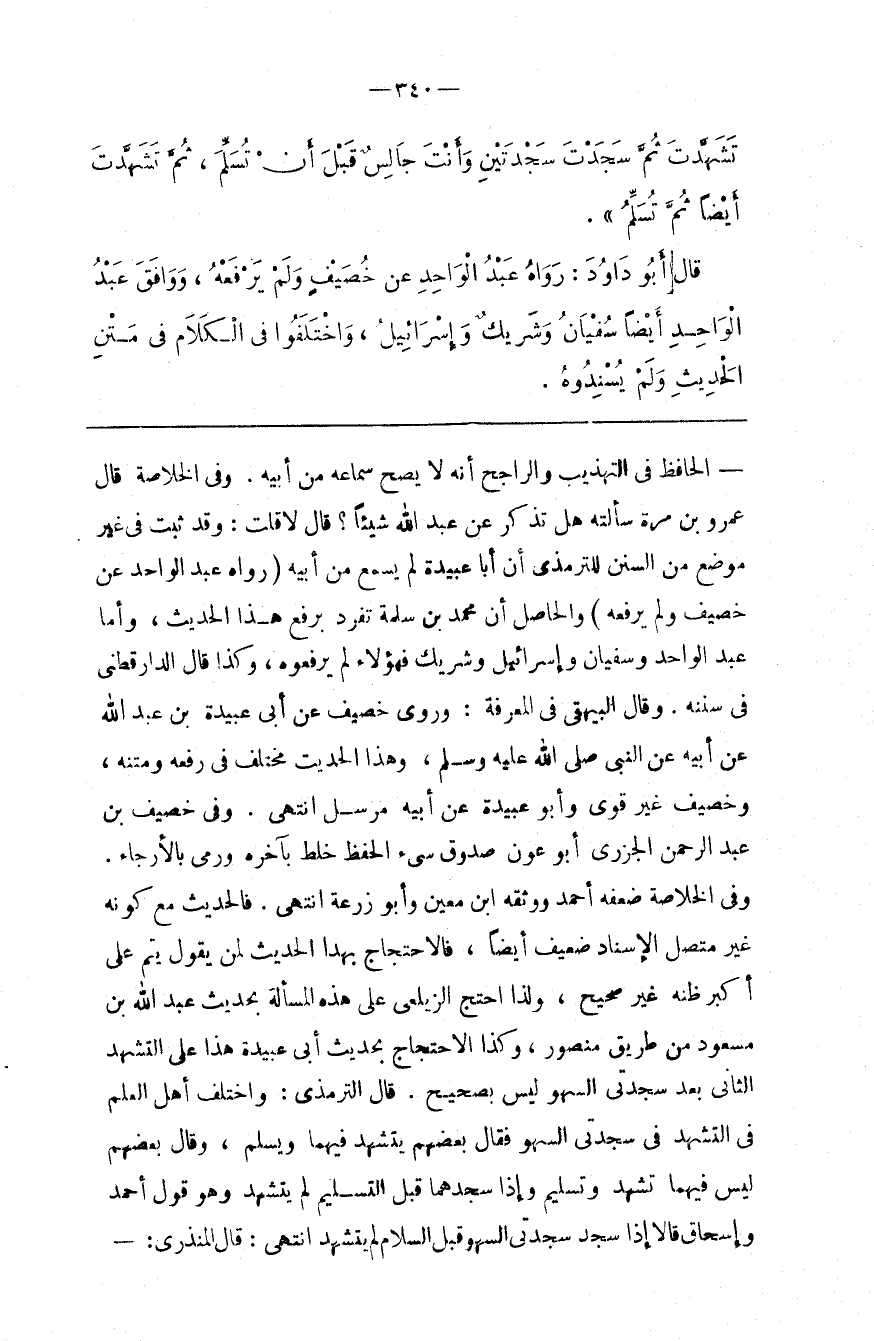 —٣٤٠—
تَشَهَّدْتَ ثُمَّ سَجَدْتَ سَجْدَتَيْنِ وَأَنْتَ جَالِسٌ قَبْلَ أَن ْ تُسَلِّمَ ، ثُمَّ تَشَهَّدْتَ
أَيْضاً ثُمَّ تُسَلِّمُ » .
قال أَبُو دَاوُدَ : رَوَاهُ عَبْدُ الْوَاحِدِ عن خُصَيْفٍ وَلَمْ يَرْفَعْهُ ، وَوَافَقَ عَبْدُ
الْوَاحِـدِ أَيْضاً سُفْيَانُ وَشَرِيكٌ وَإِسْرَائِيلُ ، وَاخْتَلَفُوا فى الْـكَلَامِ فى مَـتْنِ
الْحَدِيثِ وَلَمْ يُسْنِدُوهُ .
— الحافظ فى التهذيب والراجح أنه لا يصح سماعه من أبيه . وفى الخلاصة قال
عمرو بن مرة سألته هل تذكر عن عبد الله شيئاً ؟ قال لا قلت : وقد ثبت فى غير
موضع من السنن للترمذى أن أبا عبيدة لم يسمع من أبيه ( رواه عبد الواحد عن
خصيف ولم يرفعه ) والحاصل أن محمد بن سلمة تفرد برفع هـذا الحديث ، وأما
عبد الواحد وسفيان وإسرائيل وشريك فهؤلاء لم يرفعوه ، وكذا قال الدارقطنى
فى سننه . وقال البيهقى فى المعرفة : وروى خصيف عن أبى عبيدة بن عبد الله
عن أبيه عن النبى صلى الله عليه وسـلم ، وهذا الحديث مختلف فى رفعه ومتنه ،
وخصيف غير قوى وأبو عبيدة عن أبيه مرسـل انتهى . وفى خصيف بن
عبد الرحمن الجزرى أبو عون صدوق سىء الحفظ خلط بآخره ورمى بالأرجاء .
وفى الخلاصة ضعفه أحمد ووثقه ابن معين وأبو زرعة انتهى . فالحديث مع كونه
غير متصل الإسناد ضعيف أيضاً ، فالاحتجاج بهدا الحديث لمن يقول يتم على
أكبر ظنه غير صحيح ، ولذا احتج الزيلعى على هذه المسألة بحديث عبد الله بن
مسعود من طريق منصور ، وكذا الاحتجاج بحديث أبى عبيدة هذا على التشهد
الثانى بعد سجدتى السهو ليس بصحيـح . قال الترمذى : واختلف أهل العلم
فى التشهد فى سجدتى السهو فقال بعضهم يتشهد فيهما ويسلم ، وقال بعضهم
ليس فيهما تشهد وتسليم وإذا سجدهما قبل التسـليم لم يتشهد وهو قول أحمد
وإسحاق قالا إذا سجد سجدتى السهو قبل السلام لم يتشهد انتهى : قال المنذرى: —